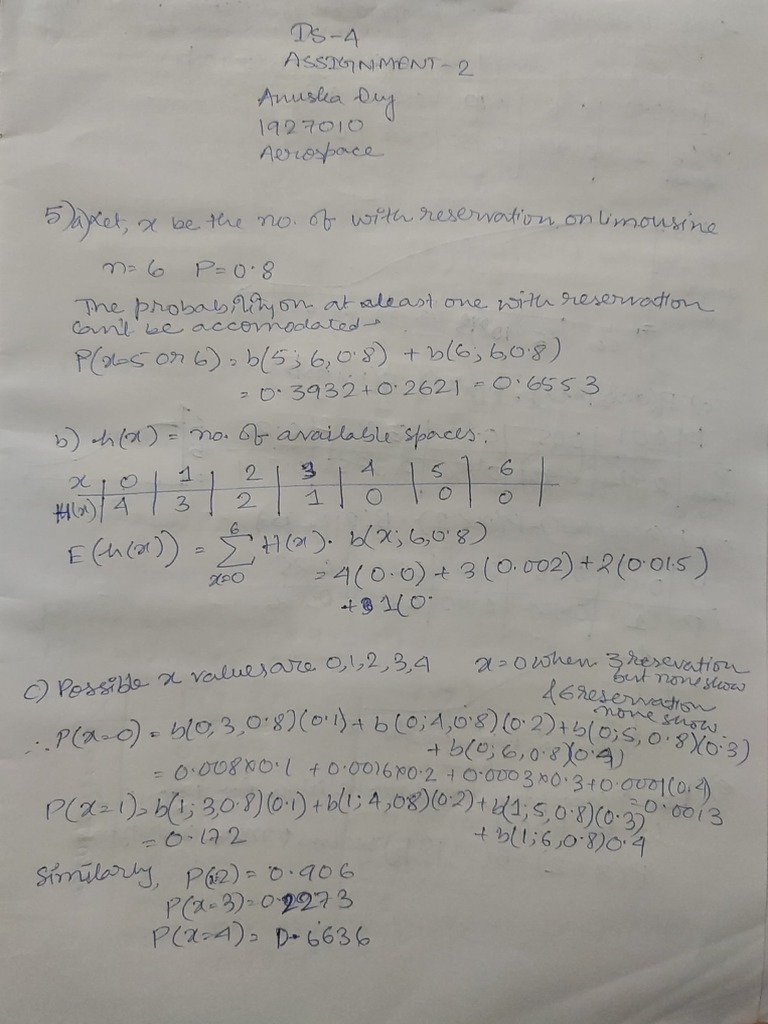 DS-4
ASSIGNMENT-2
Anuska Dey
1927010
Aerospace
5)a) Let, x be the no. of with reservation on limousine
n=6 P=0.8
The probability on at aleast one with reservation
can't be accomodated→
P(x=5 or 6) = b(5; 6, 0.8) + b(6; 6, 0.8)
= 0.3932+0.2621 = 0.6553
b) h(x) = no. of available spaces.
x 0 1 2 3 4 5 6
H(x) 4 3 2 1 0 0 0
E(h(x)) = 6∑x=0 H(x). b(x; 6, 0.8)
= 4(0.0) + 3(0.002) + 2(0.015)
+ 1(0.
c) Possible x values are 0,1,2,3,4 x=0 when 3 resevation
but none show
& 6 reservation
none show
∴ P(x=0) = b(0; 3, 0.8)(0.1) + b(0; 4, 0.8)(0.2) + b(0; 5, 0.8)(0.3)
+ b(0; 6, 0.8)(0.4)
= 0.008×0.1 + 0.0016×0.2 + 0.0003×0.3 + 0.0001(0.4)
=0.0013
P(x=1) = b(1; 3, 0.8)(0.1) + b(1; 4, 08)(0.2) + b(1; 5, 0.8)(0.3)
+ b(1; 6, 0.8)0.4
= 0.172
Similarly, P(2) = 0.906
P(x=3) = 0.2273
P(x=4) = 0.6636